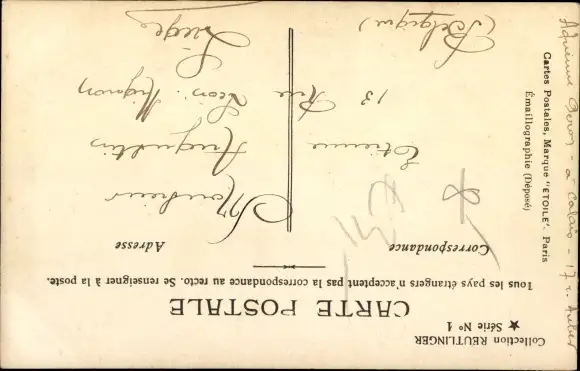 Collection REUTLINGER
★ Série Nº 1
CARTE POSTALE
Tous les pays étrangers n'acceptent pas la correspondance au recto. Se renseigner à la poste.
Correspondance
Adresse
Monsieur
Etienne Augustin
13 Rue Léon Mignon
Liège
(Belgique)
Cartes Postales, Marque "ETOILE", Paris
Émaillographie (Déposé)
Adrienne - à Calais - 7 r.